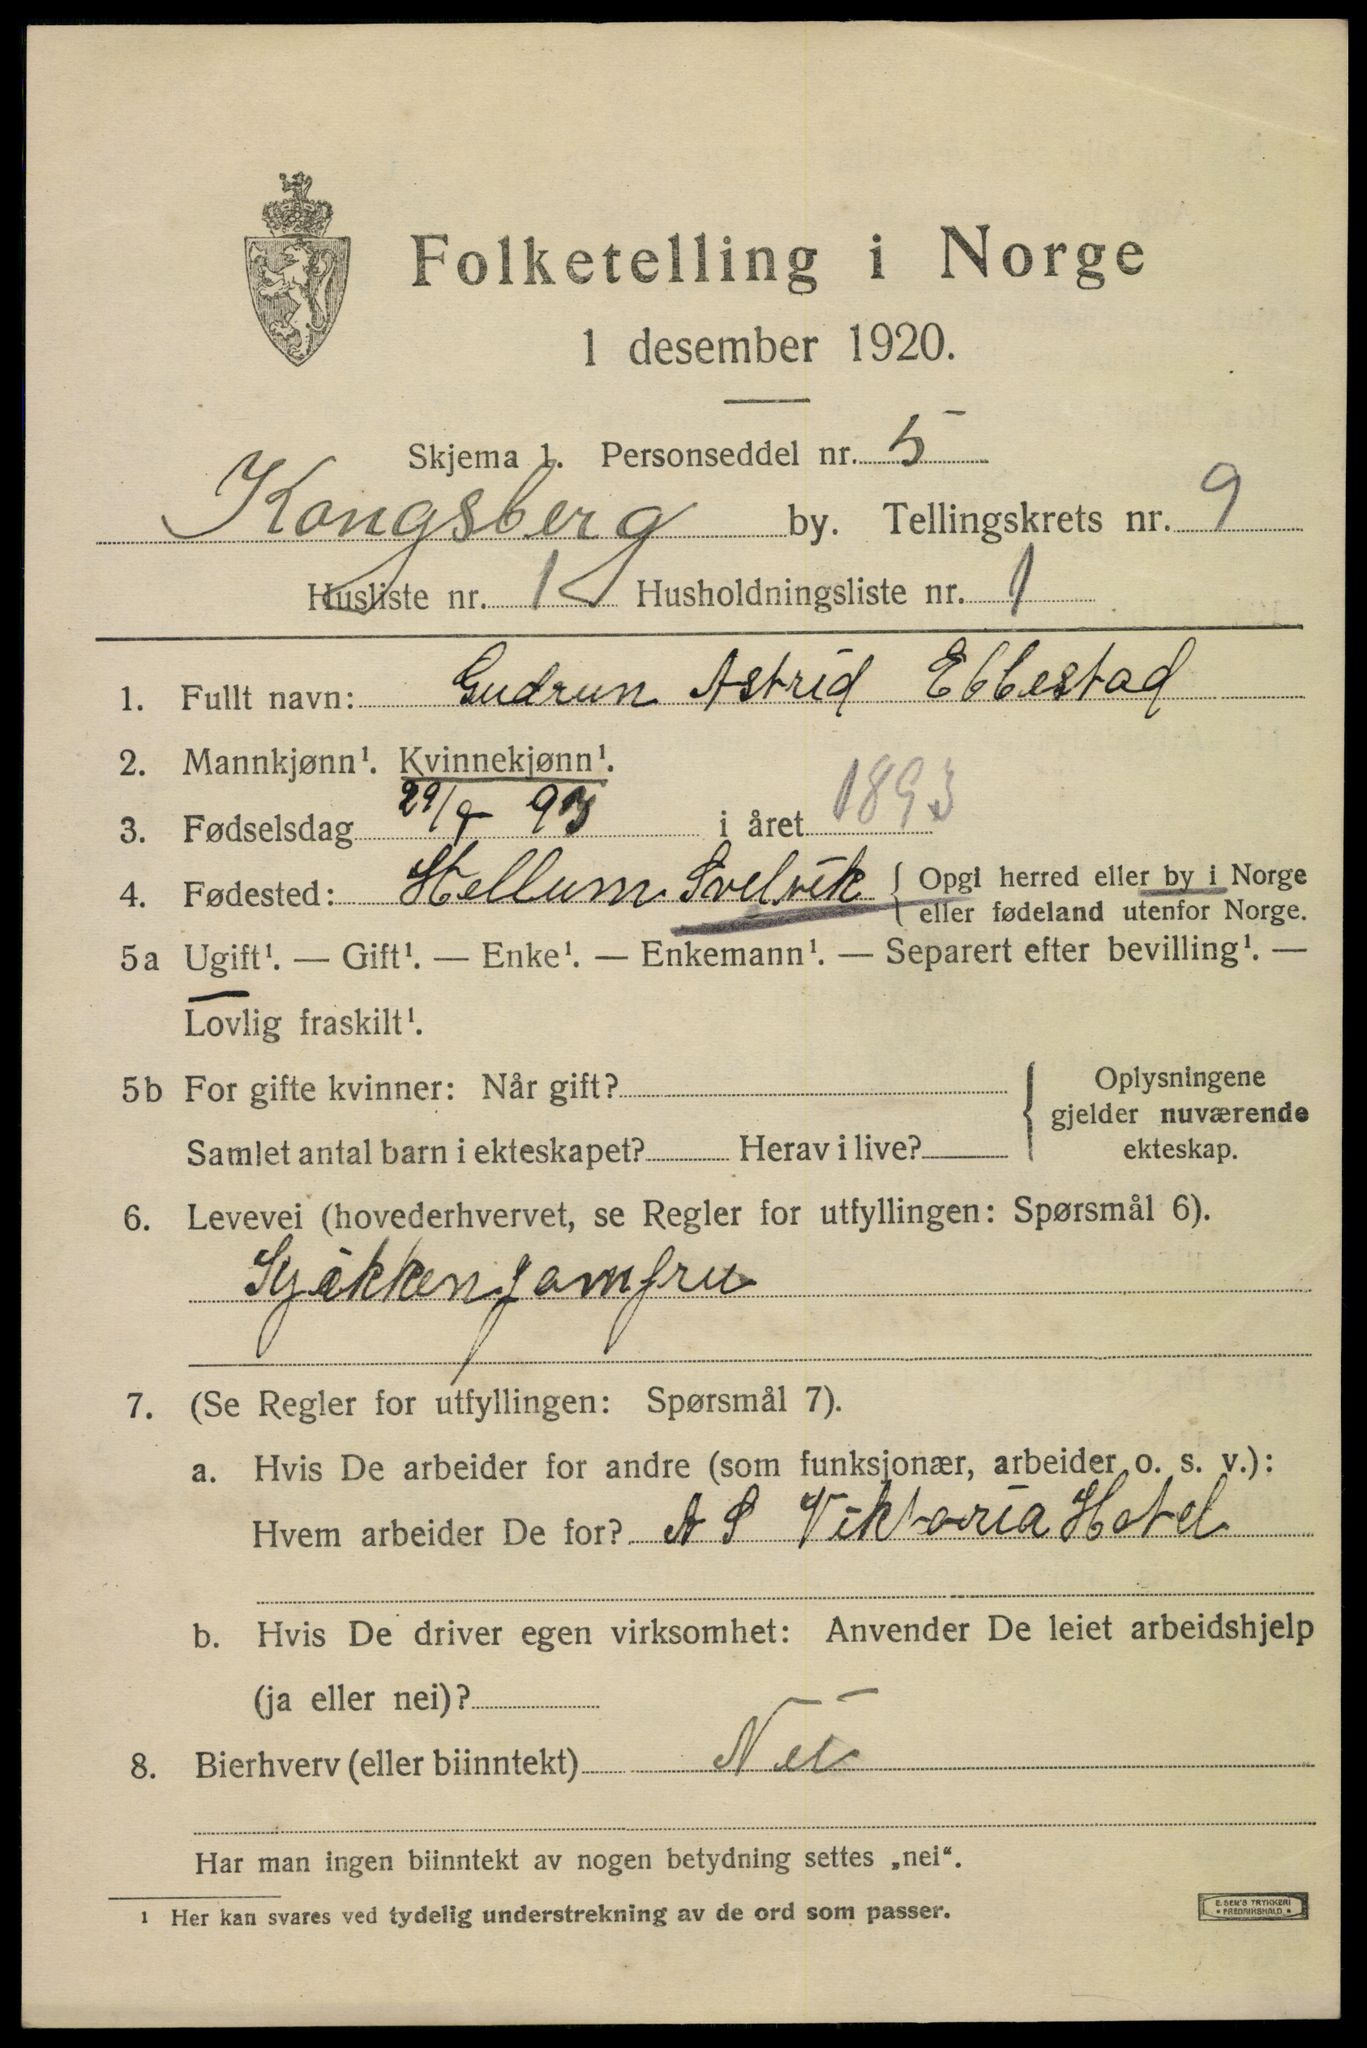 Folketelling i Norge
1 desember 1920.
Skjema 1. Personseddel nr. 5
Kongsberg by. Tellingskrets nr. 9
Husliste nr. 1 Husholdningsliste nr. 1
1. Fullt navn: Gudrun Astrid Ebbestad
2. Mannkjønn¹. Kvinnekjønn¹.
3. Fødselsdag 29/9 93 i året 1893
4. Fødested: Hellum Svelvik { Opgi herred eller by i Norge
eller fødeland utenfor Norge.
5a Ugift¹. — Gift¹. — Enke¹. — Enkemann¹. — Separert efter bevilling¹. —
Lovlig fraskilt¹.
5b For gifte kvinner: Når gift? { Oplysningene
gjelder nuværende
Samlet antal barn i ekteskapet? Herav i live? ekteskap.
6. Levevei (hovederhvervet, se Regler for utfyllingen: Spørsmål 6).
Kjøkkenjomfru
7. (Se Regler for utfyllingen: Spørsmål 7).
a. Hvis De arbeider for andre (som funksjonær, arbeider o. s. v.):
Hvem arbeider De for? A S Viktoria Hotel
b. Hvis De driver egen virksomhet: Anvender De leiet arbeidshjelp
(ja eller nei)?
8. Bierhverv (eller biinntekt) Nei
Har man ingen biinntekt av nogen betydning settes „nei“.
¹ Her kan svares ved tydelig understrekning av de ord som passer.
E. SEM'S TRYKKERI
FREDRIKSHALD